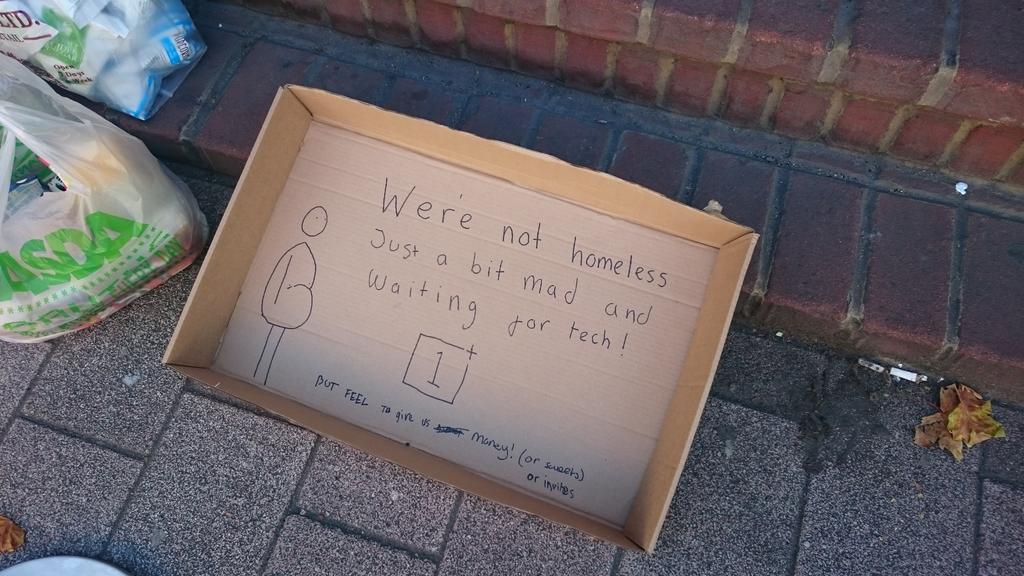 ND.
Open
7 Days
a Week
ASDA
We're not homeless
Just a bit mad and
Waiting for tech!
1+
BUT FEEL To give us money! (or sweets)
or invites